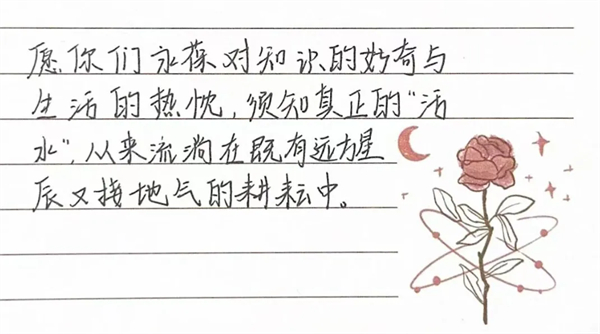 愿你们永葆对知识的妙奇与
生活的热忱，须知真正的“活
水”，从来流淌在既有远方星
辰又接地气的耕耘中。